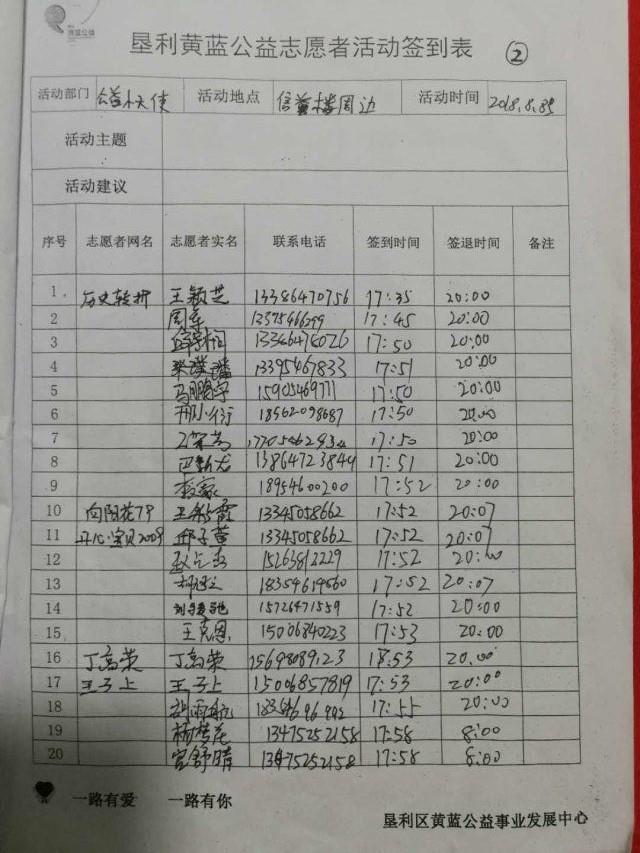 垦利黄蓝公益志愿者活动签到表 ②
活动部门 公益小天使 活动地点 信益楼周边 活动时间 2018.8.
活动主题
活动建议
序号 志愿者网名 志愿者实名 联系电话 签到时间 签退时间 备注
1 历史转折 王颖芝 13386470756 17:35 20:00
2 周 13375466299 17:45 20:00
3 17:50 20:00
4 13395467833 17:51 20:00
5 马鹏宇 15905469711 17:50 20:00
6 邢小衍 18562098687 17:50 20:00
7 17:50 20:00
8 巴新龙 13864723844 17:51 20:00
9 袁家 18954600200 17:52 20:00
10 向阳花79 王 霞 13345058662 17:52 20:07
11 开心宝贝2009 邱子萱 13345058662 17:52 20:07
12 15263812229 17:52 20:00
13 18354619560 17:52 20:07
14 15726471559 17:52 20:00
15 王克恩 15006840223 17:53 20:00
16 丁高荣 丁高荣 15698089123 18:53 20:00
17 王子上 王子上 15006857819 17:53 20:00
18 胡雨航 17:55 20:00
19 杨梦花 13475252158 17:58 8:00
20 宫舒晴 13475252158 17:58 8:00
一路有爱 一路有你
垦利区黄蓝公益事业发展中心